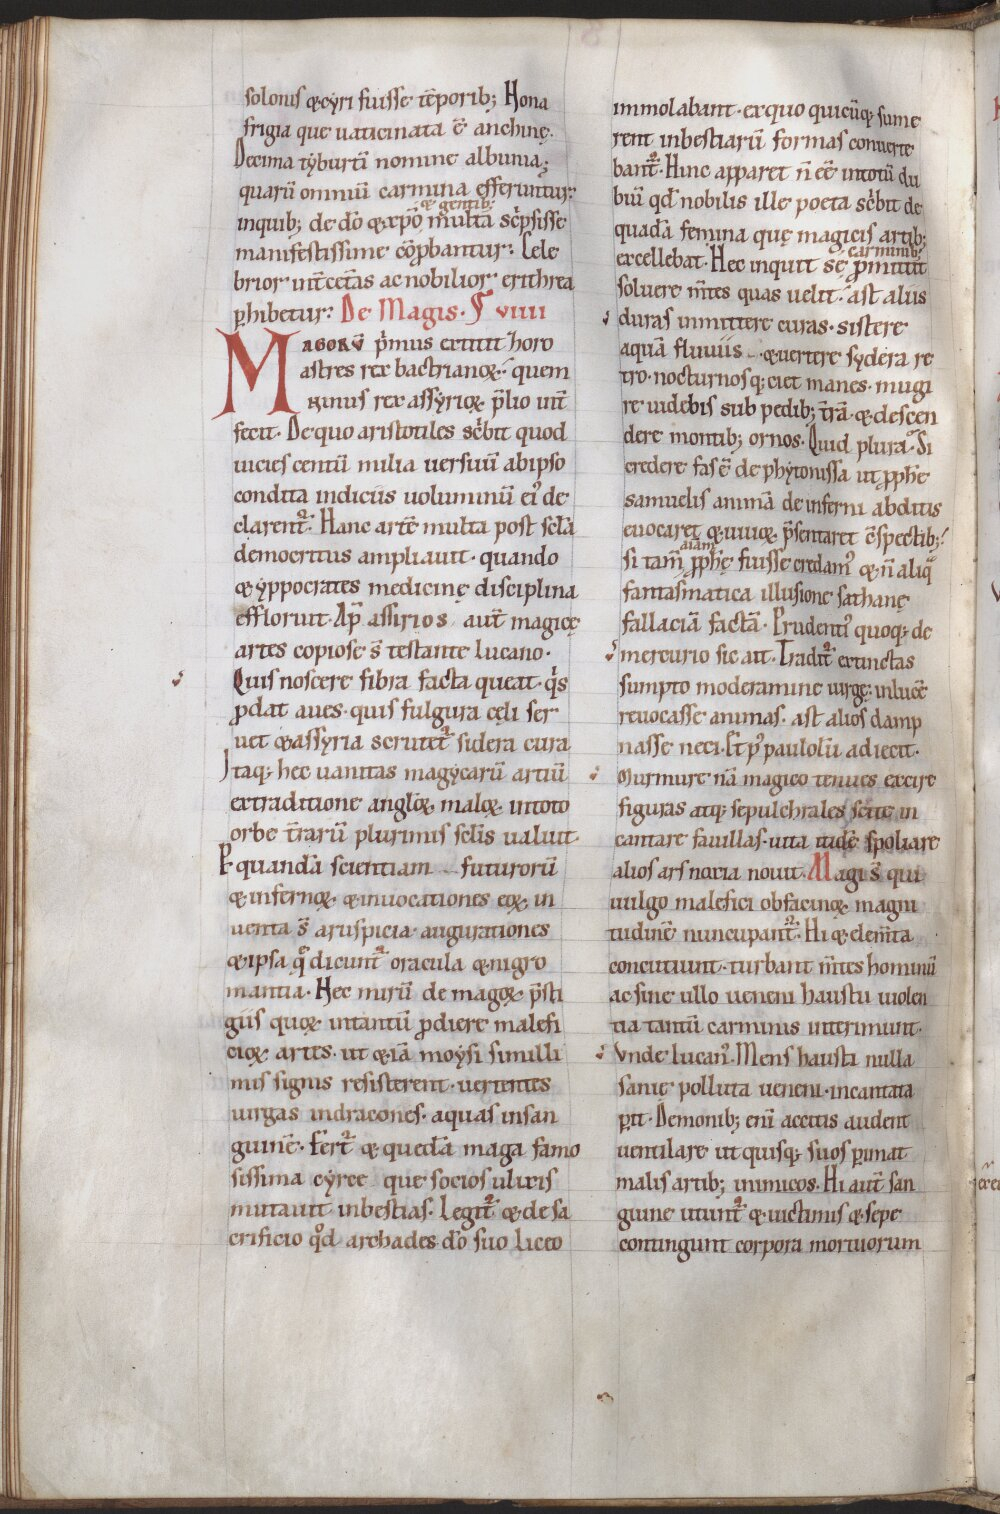 solonis & cyri fuisse tēporib; Nona
frigia que uaticinata ē anchirę.
Decima tyburtī nomine albunia;
quarū omniū carmina efferuntur:
& gentib;
inquib; de dō & xp̄o multa sc̄psisse
manifestissime cōprobantur: Cele
brior int̄cetās ac nobilior erithrea
phibetur: De Magis. viiii
MAGORŪ p̄mus extitit Zoro
astres rex bactrianoꝝ: quem
Ninus rex assyrioꝝ p̄lio uīt
fecit. De quo aristotiles sc̄bit quod
uicies centū milia uersuū abipso
condita indiciis uoluminū ei' de
clarent̄. Hanc artē multa post sc̄la
democritus ampliauit. quando
& yppocrates medicinę disciplina
effloruit. Ap̄ assirios aut̄ magicę
artes copiose s̄ testante lucano.
Quis noscere fibra facta queat. q̄s
ꝓdat aues. quis fulgura cęli ser
uet & assyria scrutet̄ sidera cura
Itaq; hec uanitas magycarū artiū
extraditione angl̄oꝝ maloꝝ intoto
orbe t̄rarū plurimis sc̄lis ualuit
P quandā scientiam futurorū
& infernoꝝ & inuocationes eoꝝ in
uenta s̄ aruspicia augurationes
& ipsa q̄ dicunt̄ oracula & nigro
mantia. Nec mirū de magoꝝ p̄sti
giis quoꝝ intantū ꝓdiere malefi
cioꝝ artes. ut & iā moysi simili
mis signis resisterent. uertentes
uirgas indracones. aquas insan
guinē. Fert̄ & quedā maga famo
sissima cyrce que socios ulixis
mutauit inbestias. Legit̄ & de sa
crificio qd̄ archades dō suo liceo
immolabant. exquo quicūq; sume
rent inbestiarū formas conuerte
bant̄. Hinc apparet n̄ eē intotū du
biū qd̄ nobilis ille poeta sc̄bit de
quadā femina quę magicis artib;
carminib;
excellebat. Hec inquit sę ꝓmittit
soluere m̄tes quas uelit. ast aliis
duras inmittere curas. sistere
aquā fluuiis & uertere sydera re
tro. nocturnosq; ciet manes. mugi
re uidebis sub pedib; t̄rā. & descen
dere montib; ornos. Quid plura. Si
credere fas ē de phytonissa ut ꝓphē
samuelis animā de inferni abditis
euocaret & uiuoꝝ p̄sentaret cs̄pectib;
aīam
si tam̄ ꝓphę fuisse credam' & n̄ aliq̄
fantasmatica illusione sathanę
fallaciā factā. Prudenti' quoq; de
mercurio sic ait. Tradit̄ extinctas
sumpto moderamine uirgę: inlucē
reuocasse animas. ast alios damp
nasse neci. Et p' paulolū adiecit.
Murmure nā magico tenues excire
figuras atq; sepulchrales scite in
cantare fauillas. uita itidē spoliare
alios ars noxia nouit. Magi s̄ qui
uulgo malefici ob facinoꝝ magni
tudinē nuncupant̄. Hi & elem̄ta
concutiunt. turbant m̄tes hominū
ac sine ullo ueneni haustu uiolen
tia tantū carminis interimunt.
Vnde lucan'. Mens hausti nulla
sanie polluta ueneni. incantata
ꝑit. Demonib; enī accitis audent
uentilare ut quisq; suos ꝑimat
malis artib; inimicos. Hi aut̄ san
guine utunt̄ & uictimis & sepe
contingunt corpora mortuorum